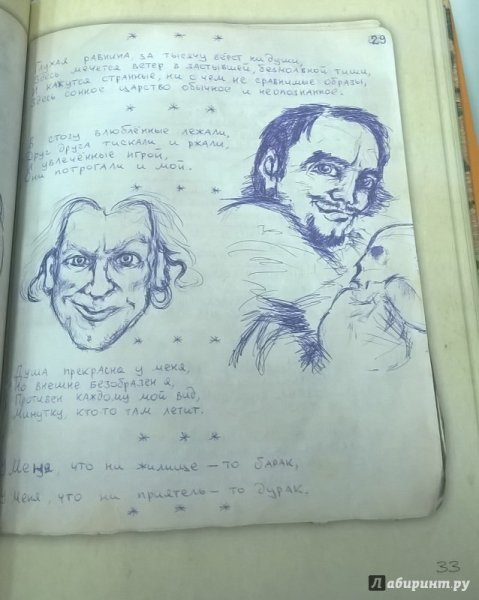 29
Глухая равнина, за тысячу вёрст ни души,
Здесь мечется ветер в застывшей, безмолвной тиши,
И кажутся странные, ни с чем не сравнимые образы,
Здесь сонное царство обычное и неопознанное.
* * *
В стогу влюблённые лежали,
Друг друга тискали и ржали,
И увлечённые игрой,
Они потрогали и мой.
* * *
* * *
Душа прекрасна у меня,
Но внешне безобразен я,
Противен каждому мой вид,
Минутку, кто-то там летит.
* * *
У меня, что ни жилище – то барак,
У меня, что ни приятель – то дурак.
* * *
33
Лабиринт.ру